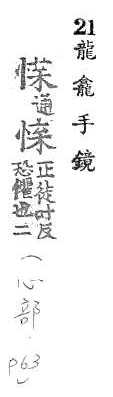 21龍龕手鏡
㥬通㥆正徒叶反
恐懼也二
(心部.p63)